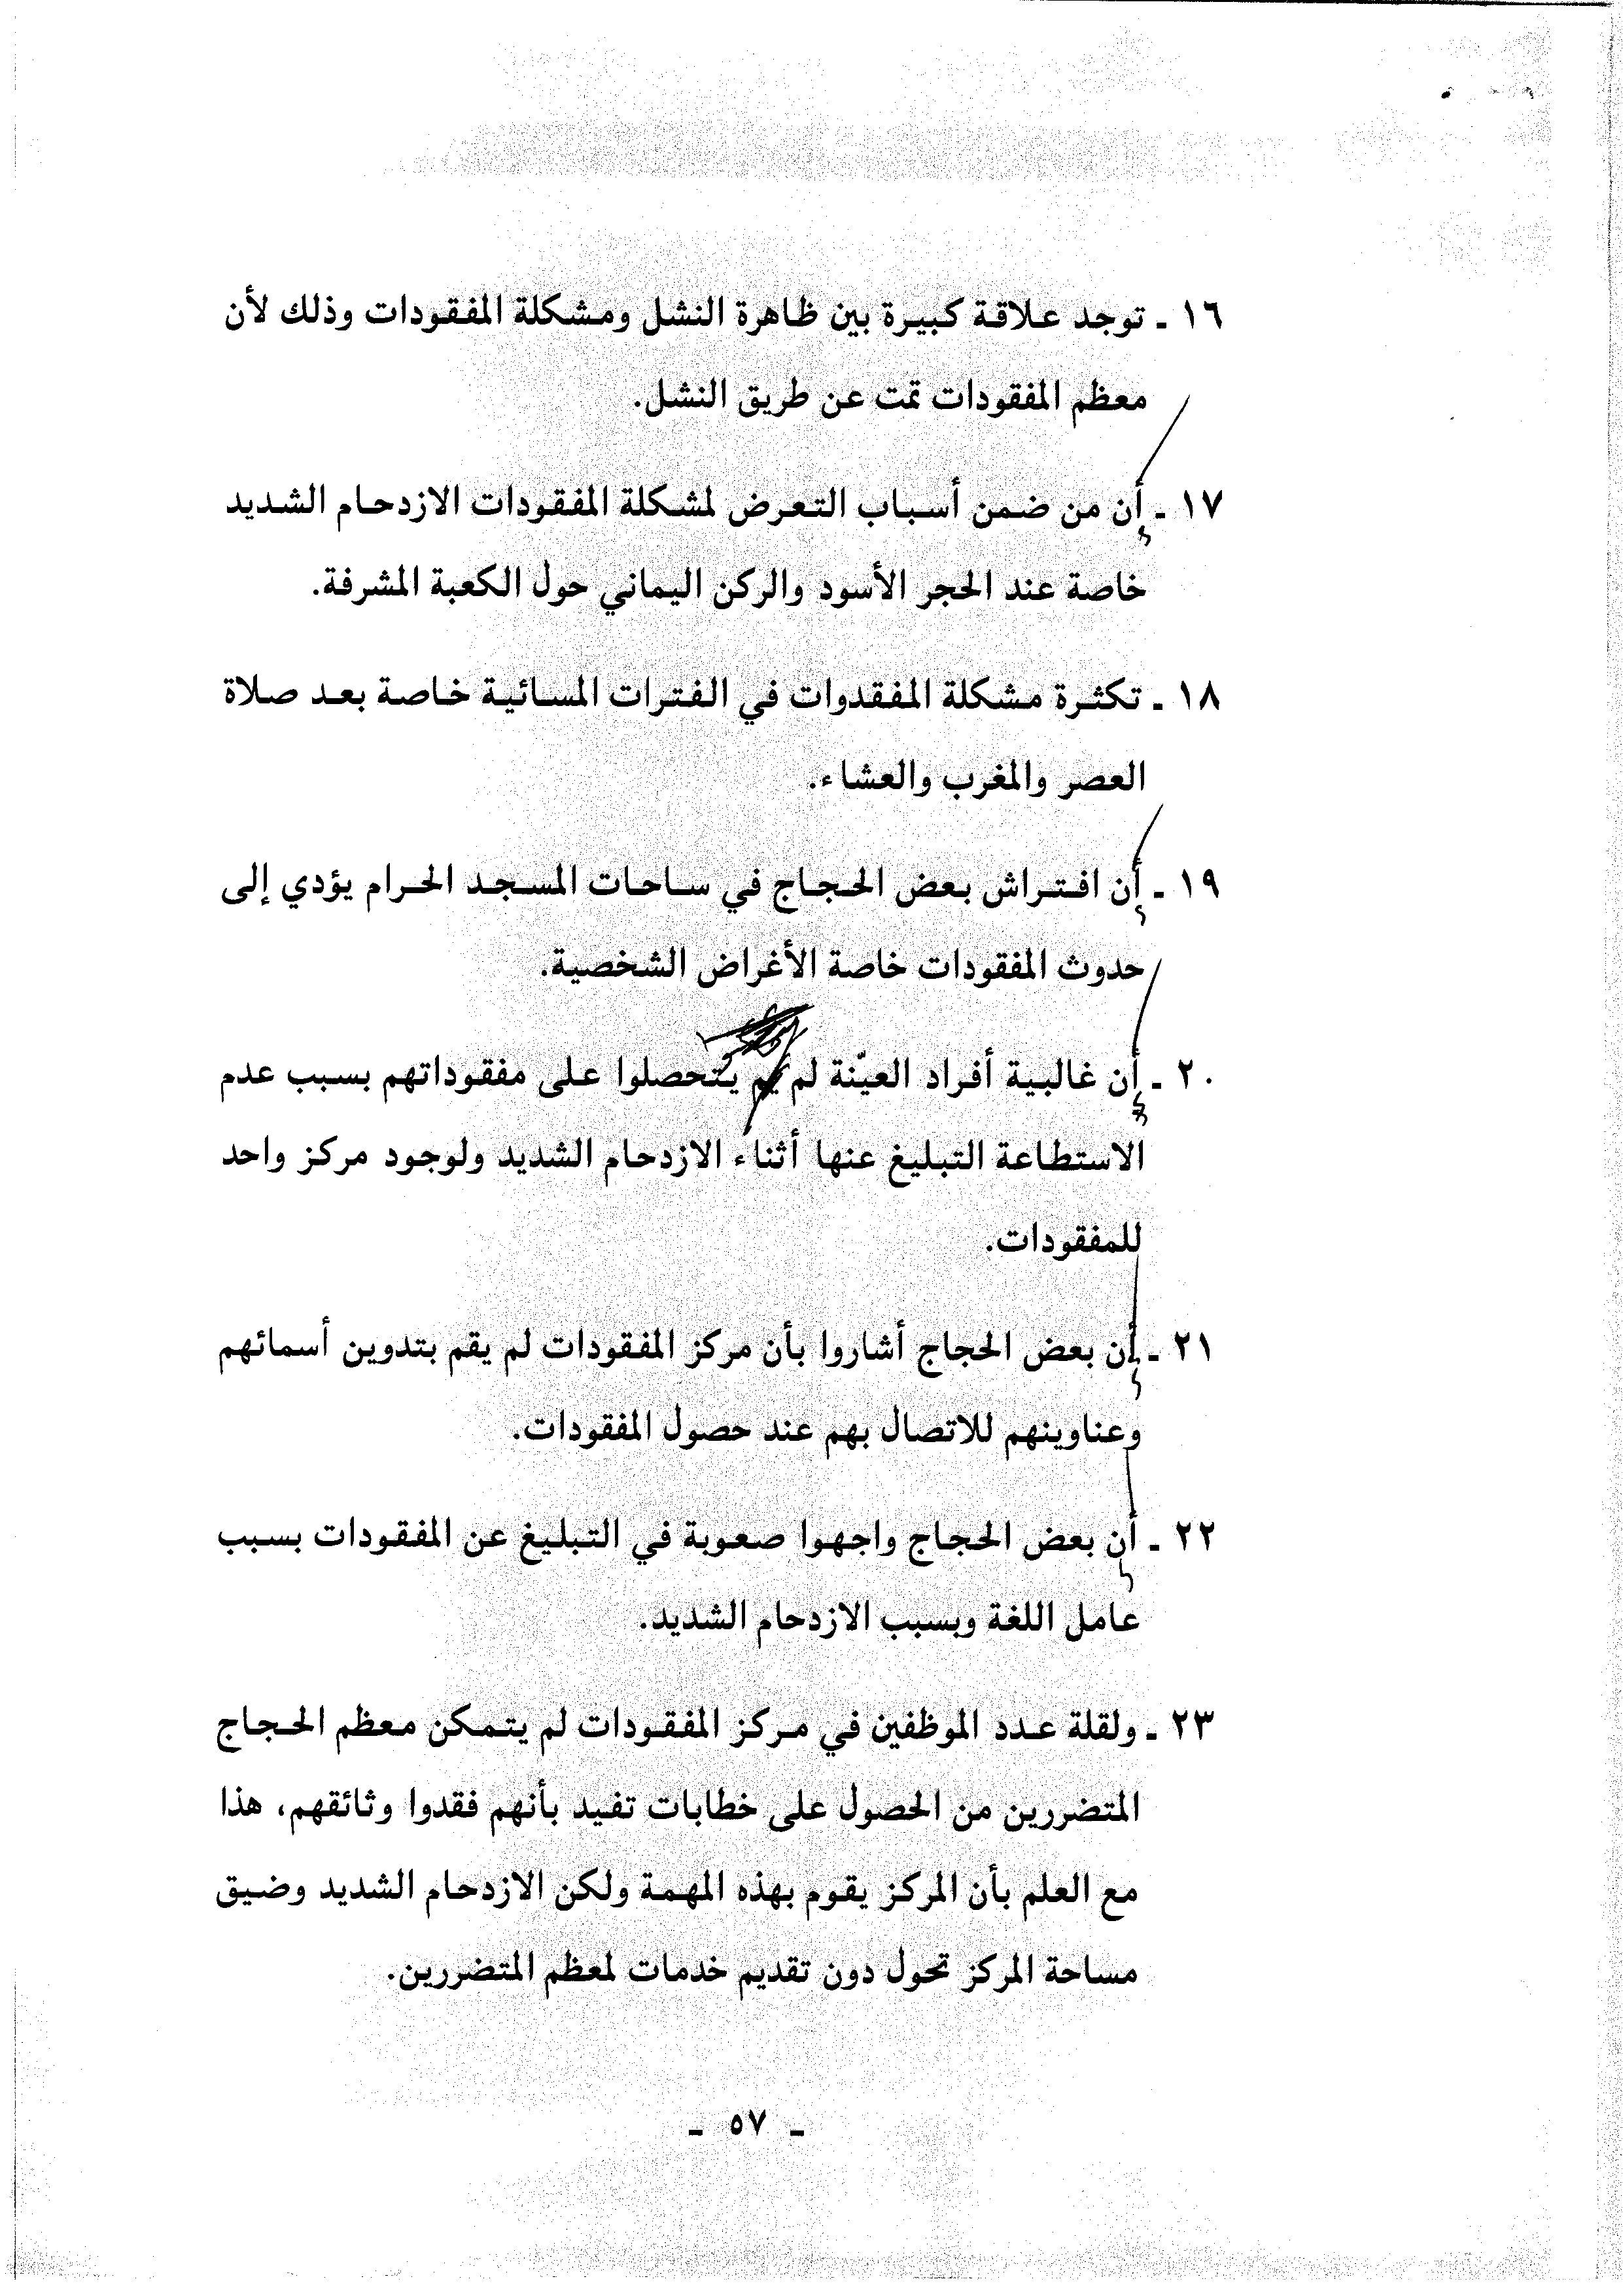 ١٦ ـ توجد علاقة كبيرة بين ظاهرة النشل ومشكلة المفقودات وذلك لأن
معظم المفقودات تمت عن طريق النشل.
١٧ ـ أن من ضمن أسباب التعرض لمشكلة المفقودات الازدحام الشديد
خاصة عند الحجر الأسود والركن اليماني حول الكعبة المشرفة.
١٨ ـ تكثرة مشكلة المفقدوات في الفترات المسائية خاصة بعد صلاة
العصر والمغرب والعشاء.
١٩ ـ أن افتراش بعض الحجاج في ساحات المسجد الحرام يؤدي إلى
حدوث المفقودات خاصة الأغراض الشخصية.
٢٠ ـ أن غالبية أفراد العيّنة لم يتحصلوا على مفقوداتهم بسبب عدم
الاستطاعة التبليغ عنها أثناء الازدحام الشديد ولوجود مركز واحد
للمفقودات.
٢١ ـ أن بعض الحجاج أشاروا بأن مركز المفقودات لم يقم بتدوين أسمائهم
وعناوينهم للاتصال بهم عند حصول المفقودات.
٢٢ ـ أن بعض الحجاج واجهوا صعوبة في التبليغ عن المفقودات بسبب
عامل اللغة وبسبب الازدحام الشديد.
٢٣ ـ ولقلة عدد الموظفين في مركز المفقودات لم يتمكن معظم الحجاج
المتضررين من الحصول على خطابات تفيد بأنهم فقدوا وثائقهم، هذا
مع العلم بأن المركز يقوم بهذه المهمة ولكن الازدحام الشديد وضيق
مساحة المركز تحول دون تقديم خدمات لمعظم المتضررين.
ـ ٥٧ ـ